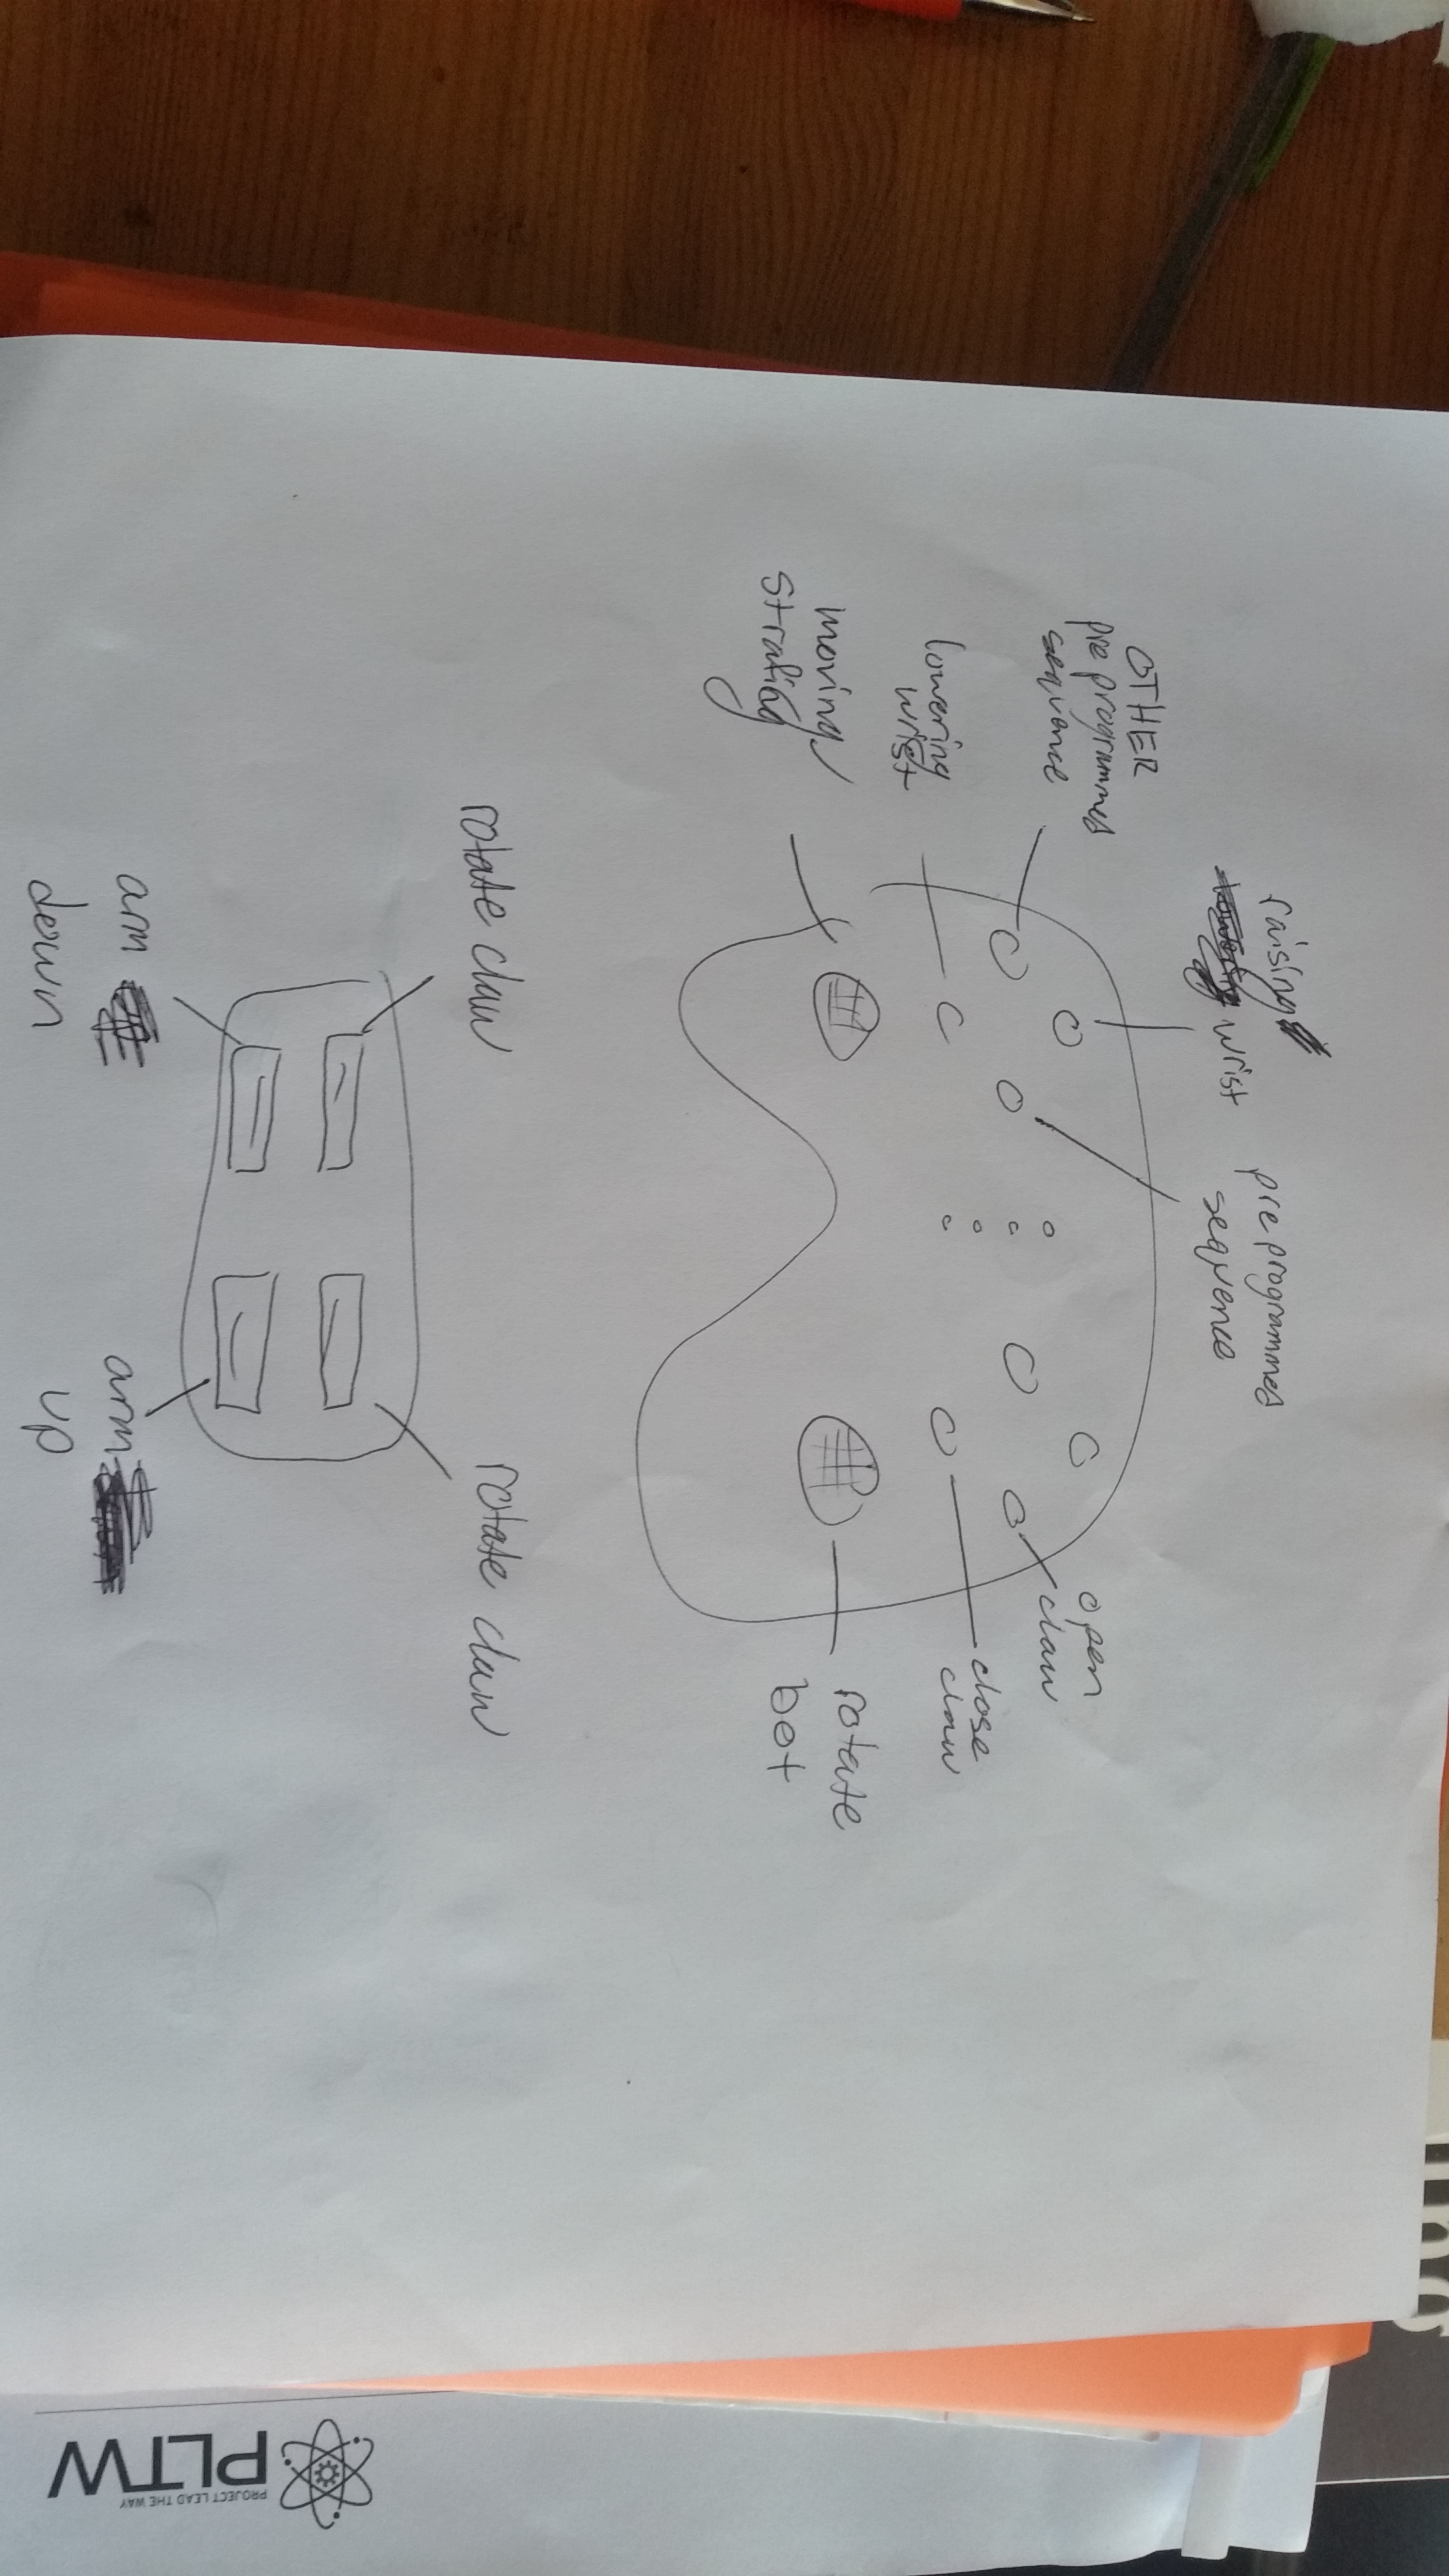 raising
wrist
pre programmes
sequence
OTHER
pre programmes
sequence
lowering
wrist
moving
strafing
open
claw
close
claw
rotate
bot
rotate claw
rotate claw
arm
down
arm
up
PLTW
PROJECT LEAD THE WAY